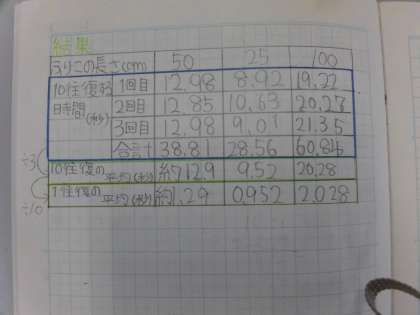 結果
ふりこの長さ(cm) 50 25 100
10往復する 1回目 12.98 8.92 19.22
時間(秒) 2回目 12.85 10.63 20.27
3回目 12.98 9.01 21.35
合計 38.81 28.56 60.84
÷3 10往復の平均(秒) 約12.9 9.52 20.28
÷10 1往復の平均(秒) 約1.29 0.952 2.028